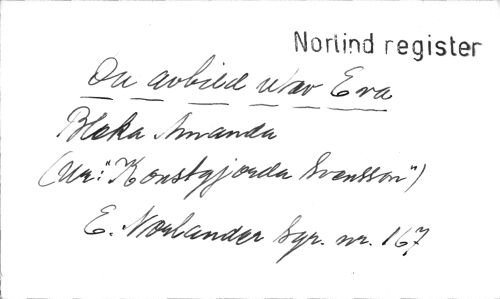 Norlind register
Du avbild utav Eva
Bleka Amanda
(Ur: "Konstgjorda Svensson")
E. Norlander Syr. nr. 167